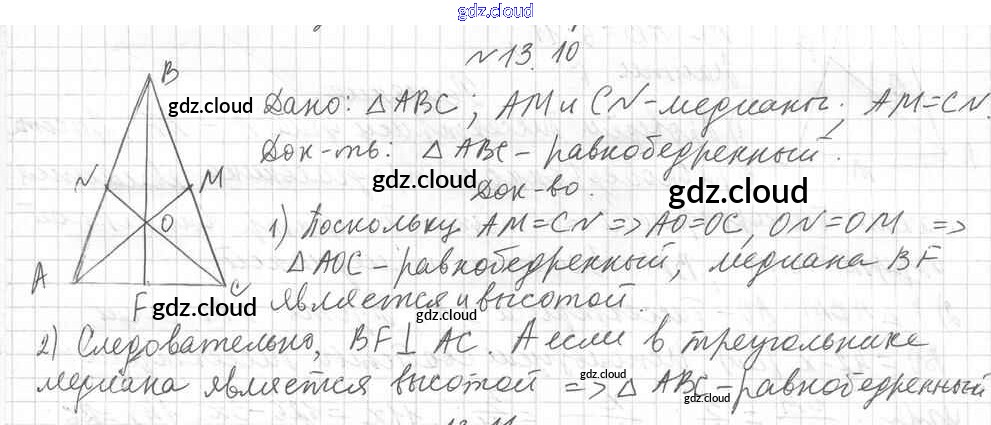 gdz.cloud
№13.10
B
gdz.cloud
Дано: △ABC; AM и CN-медианы; AM=CN.
Док-ть: △ABC-равнобедренный.
N M
gdz.cloud
Док-во.
gdz.cloud
O
1) Поскольку AM=CN => AO=OC, ON=OM =>
△AOC-равнобедренный, медиана BF
A F C
gdz.cloud
является и высотой.
gdz.cloud
2) Следовательно, BF⊥AC. А если в треугольнике
gdz.cloud
медиана является высотой => △ABC-равнобедренный
gdz.cloud